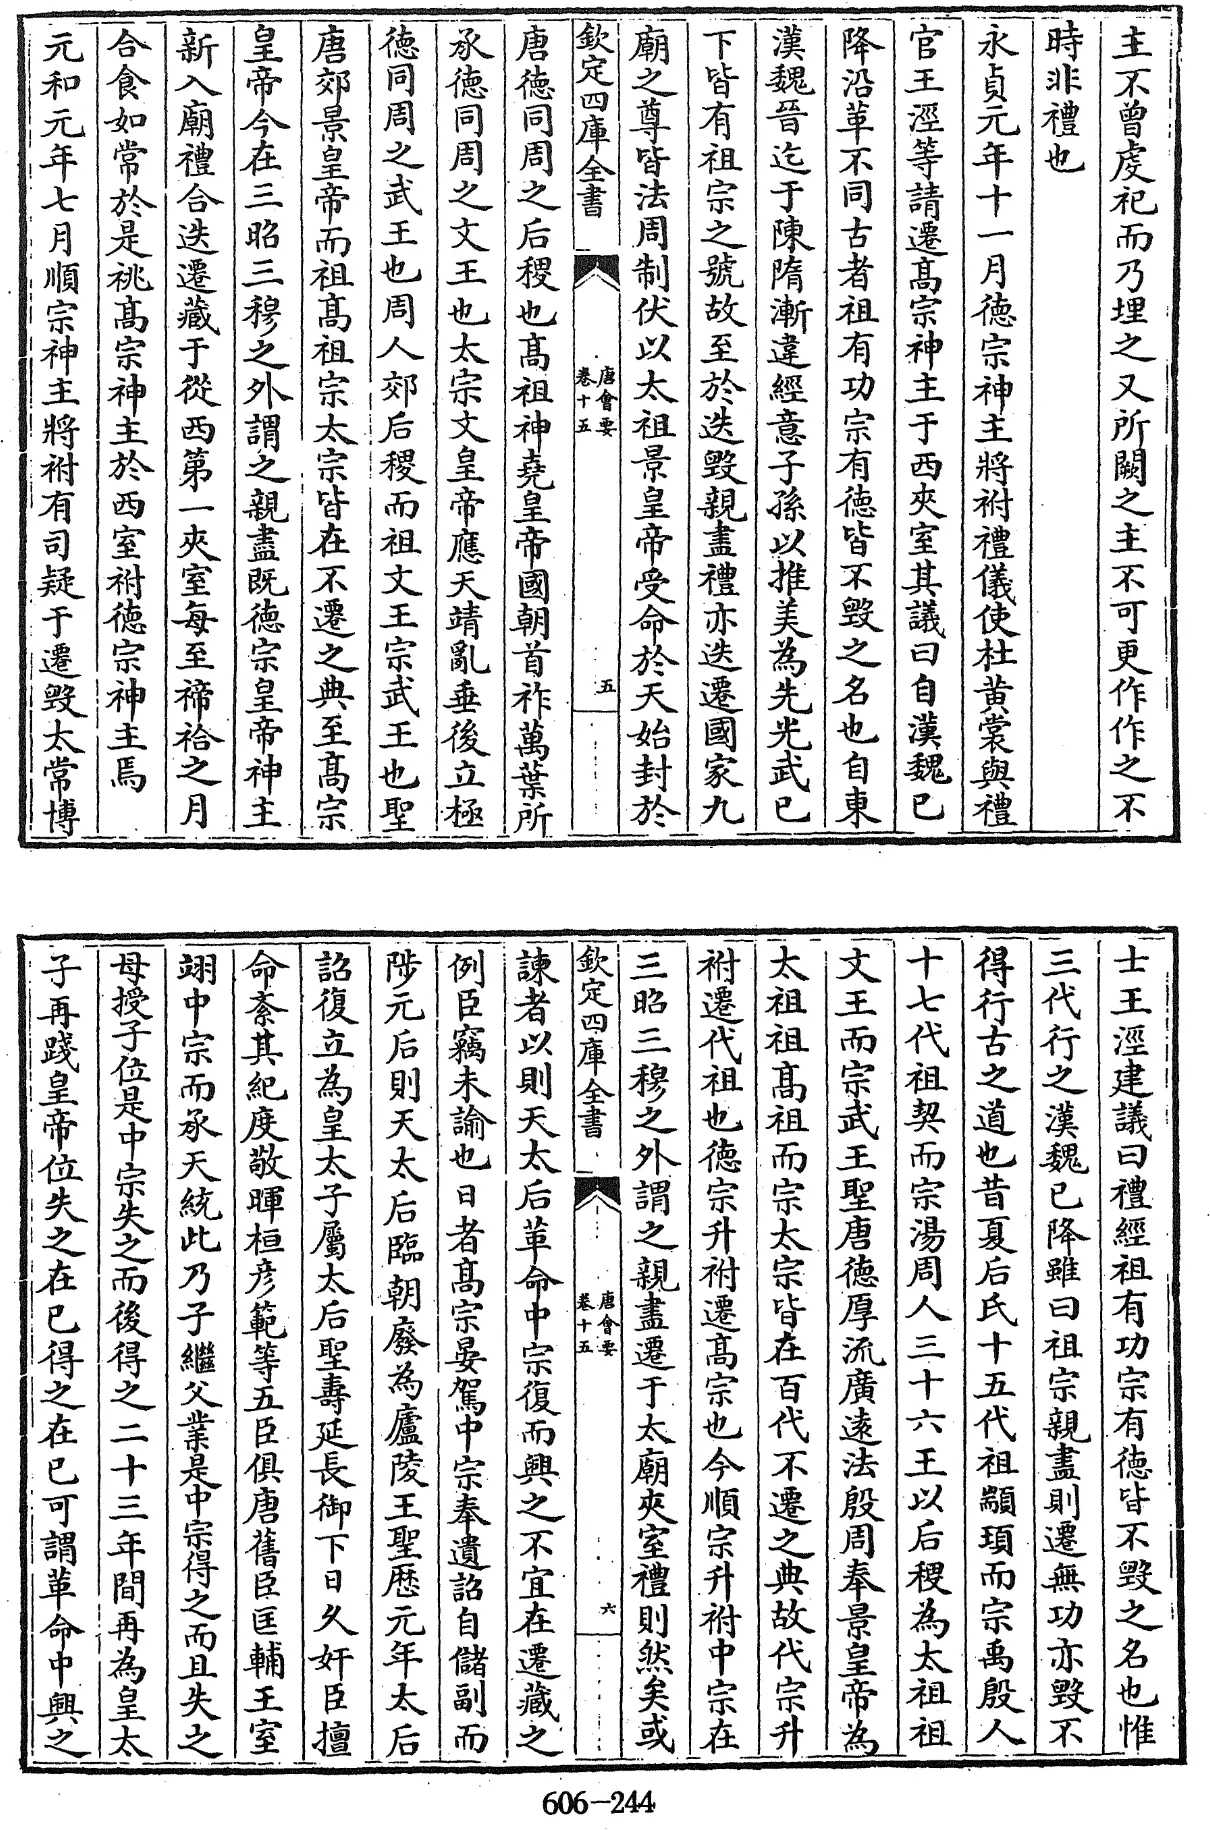 主不曾虔祀而乃埋之又所闕之主不可更作作之不
時非禮也
永貞元年十一月德宗神主將祔禮儀使杜黄裳與禮
官王涇等請遷髙宗神主于西夾室其議曰自漢魏已
降沿革不同古者祖有功宗有德皆不毁之名也自東
漢魏晉迄于陳隋漸違經意子孫以推美為先光武已
下皆有祖宗之號故至於迭毁親盡禮亦迭遷國家九
廟之尊皆法周制伏以太祖景皇帝受命於天始封於
欽定四庫全書
唐會要
卷十五
五
唐德同周之后稷也髙祖神堯皇帝國朝首祚萬葉所
承德同周之文王也太宗文皇帝應天靖亂垂後立極
德同周之武王也周人郊后稷而祖文王宗武王也聖
唐郊景皇帝而祖髙祖宗太宗皆在不遷之典至髙宗
皇帝今在三昭三穆之外謂之親盡既德宗皇帝神主
新入廟禮合迭遷藏于從西第一夾室每至禘祫之月
合食如常於是祧髙宗神主於西室祔德宗神主焉
元和元年七月順宗神主將祔有司疑于遷毁太常博
士王涇建議曰禮經祖有功宗有德皆不毁之名也惟
三代行之漢魏已降雖曰祖宗親盡則遷無功亦毁不
得行古之道也昔夏后氏十五代祖顓頊而宗禹殷人
十七代祖契而宗湯周人三十六王以后稷為太祖祖
文王而宗武王聖唐德厚流廣遠法殷周奉景皇帝為
太祖祖髙祖而宗太宗皆在百代不遷之典故代宗升
祔遷代祖也德宗升祔遷髙宗也今順宗升祔中宗在
三昭三穆之外謂之親盡遷于太廟夾室禮則然矣或
欽定四庫全書
唐會要
卷十五
六
諫者以則天太后革命中宗復而興之不宜在遷藏之
例臣竊未諭也日者髙宗晏駕中宗奉遺詔自儲副而
陟元后則天太后臨朝廢為廬陵王聖厯元年太后
詔復立為皇太子屬太后聖壽延長御下日久奸臣擅
命紊其紀度敬暉桓彦範等五臣俱唐舊臣匡輔王室
翊中宗而承天統此乃子繼父業是中宗得之而且失之
母授子位是中宗失之而後得之二十三年間再為皇太
子再踐皇帝位失之在已得之在已可謂革命中興之
606-244